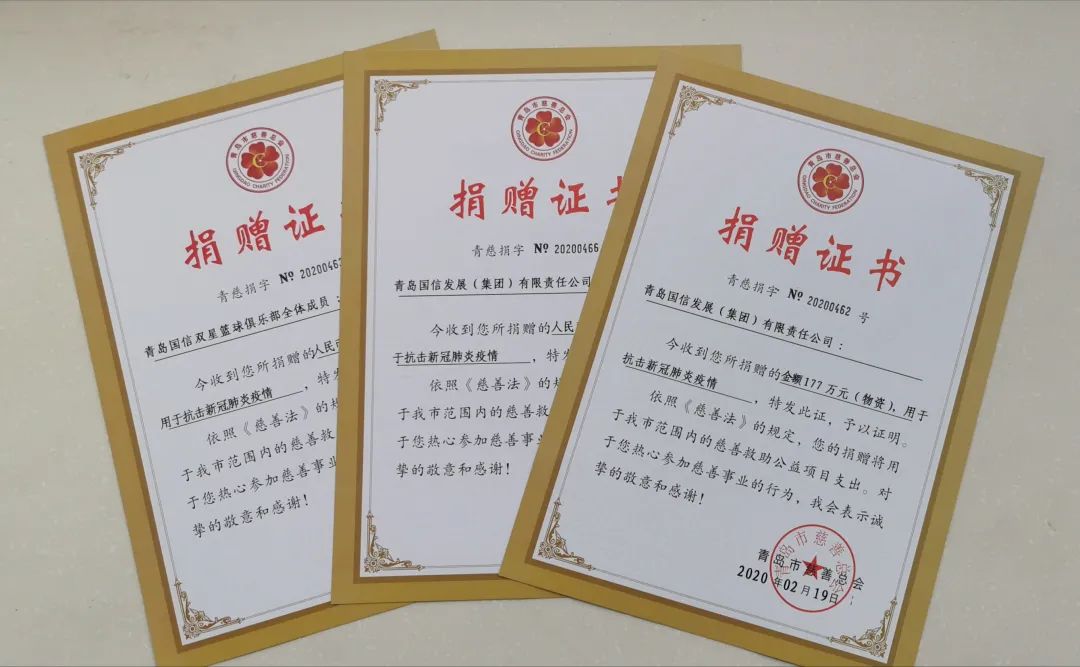 青岛市慈善总会
QINGDAO CHARITY FEDERATION
捐赠证
青慈捐字 Nº 2020046
青岛国信双星篮球俱乐部全体成员：
今收到您所捐赠的人民
用于抗击新冠肺炎疫情，特发
依照《慈善法》的规
于我市范围内的慈善救
于您热心参加慈善事业
挚的敬意和感谢！
青岛市慈善总会
QINGDAO CHARITY FEDERATION
捐赠证书
青慈捐字 Nº 20200466
青岛国信发展（集团）有限责任公司
今收到您所捐赠的人民
于抗击新冠肺炎疫情，特发
依照《慈善法》的规
于我市范围内的慈善救
于您热心参加慈善事业
挚的敬意和感谢！
青岛市慈善总会
QINGDAO CHARITY FEDERATION
捐赠证书
青慈捐字 Nº 20200462 号
青岛国信发展（集团）有限责任公司：
今收到您所捐赠的金额177万元（物资），用于
抗击新冠肺炎疫情，特发此证，予以证明。
依照《慈善法》的规定，您的捐赠将用
于我市范围内的慈善救助公益项目支出。对
于您热心参加慈善事业的行为，我会表示诚
挚的敬意和感谢！
青岛市慈善总会
青岛市慈善总会
2020年02月19日